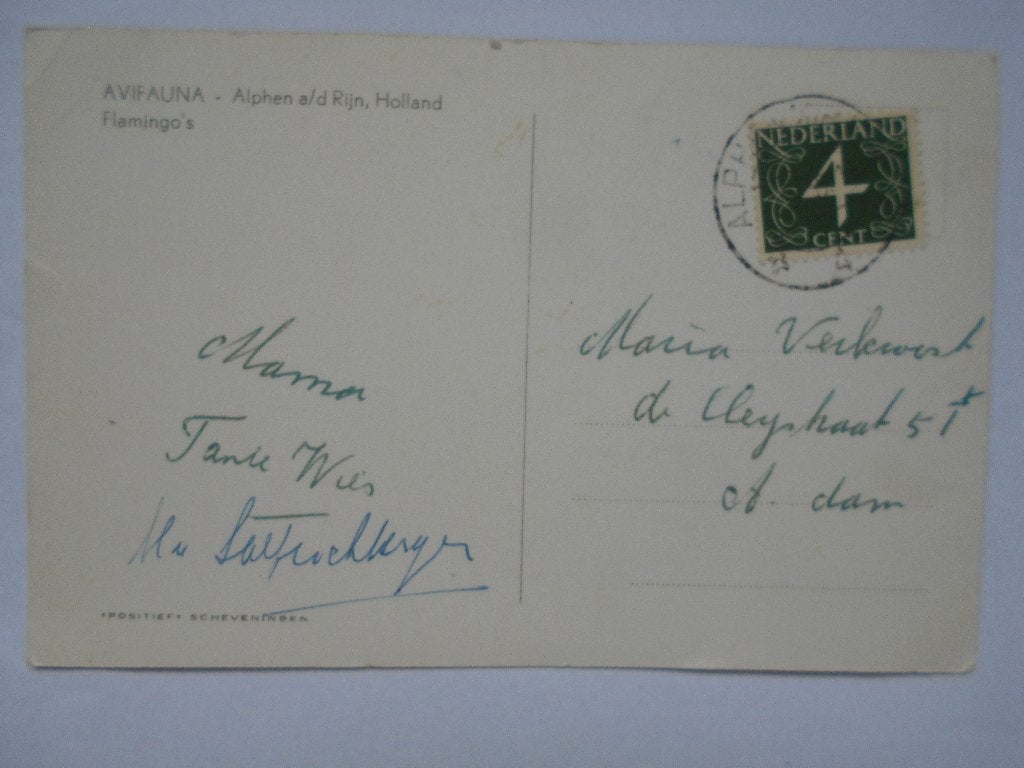 AVIFAUNA - Alphen a/d Rijn, Holland
Flamingo's
NEDERLAND
4
CENT
ALPH
Mama
Tante Wies
Maria Verkwost
de Cleystraat 5 I
A. dam
+POSITIEF+ SCHEVENINGEN